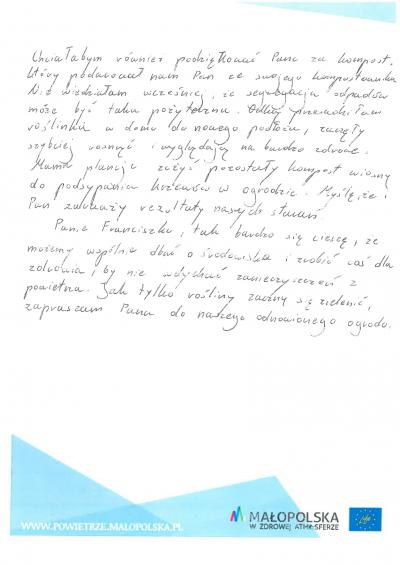 Chciałabym również podziękować Panu za kompost,
który podarował nam Pan ze swojego kompostownika
Nie wiedziałam wcześniej, że segregacja odpadów
może być taka pożyteczna. Odkąd przesadziłam
roślinki w domu do nowego podłoża, zaczęły
szybciej rosnąć i wyglądają na bardzo zdrowe.
Mama planuje zużyć pozostały kompost wiosną
do podsypania krzewów w ogrodzie. Myślę, że i
Pan zauważy rezultaty naszych starań.
Panie Franciszku, tak bardzo się cieszę, że
możemy wspólnie dbać o środowisko i zrobić coś dla
zdrowia, i by nie wdychać zanieczyszczeń z
powietrza. Jak tylko rośliny zaczną się zielenić,
zapraszam Pana do naszego odnowionego ogrodu.
WWW.POWIETRZE.MALOPOLSKA.PL
MAŁOPOLSKA
W ZDROWEJ ATMOSFERZE